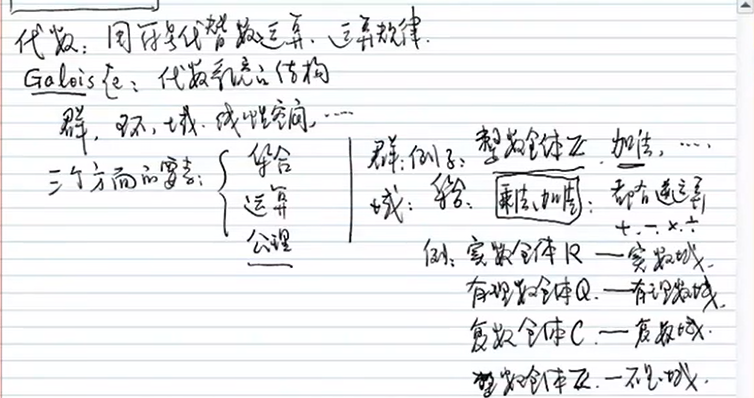 代数：用符号代替数运算、运算规律.
Galois后：代数系统的结构
群, 环, 域. 线性空间, ……
三个方面的要素：
集合
运算
公理
群：例子：整数全体Z, 加法, ……
域：集合：乘法、加法；都有逆运算
+. −. ×. ÷
例：实数全体R —实数域.
有理数全体Q. —有理数域.
复数全体C. —复数域.
整数全体Z. —不是域.